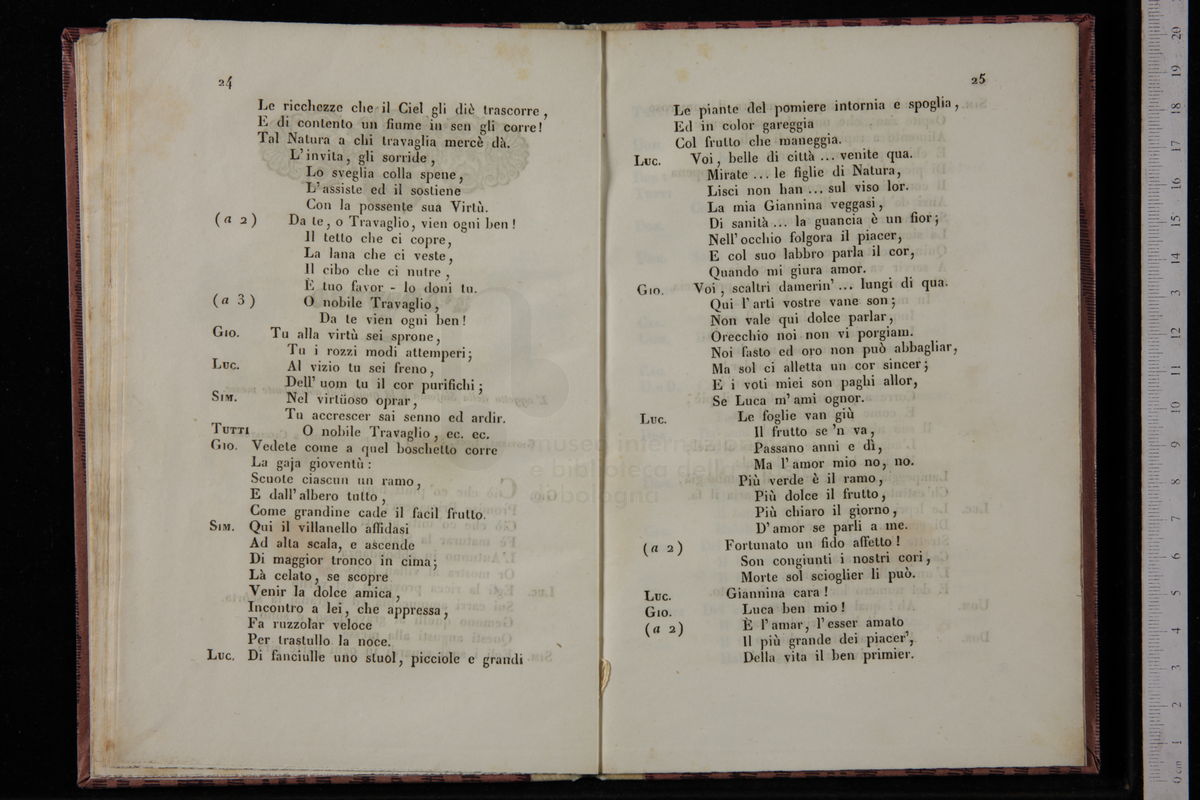 24
Le ricchezze che il Ciel gli diè trascorre,
E di contento un fiume in sen gli corre!
Tal Natura a chi travaglia mercè dà.
L'invita, gli sorride,
Lo sveglia colla spene,
L'assiste ed il sostiene
Con la possente sua Virtù.
(a 2) Da te, o Travaglio, vien ogni ben!
Il tetto che ci copre,
La lana che ci veste,
Il cibo che ci nutre,
È tuo favor - lo doni tu.
(a 3) O nobile Travaglio,
Da te vien ogni ben!
Gio. Tu alla virtù sei sprone,
Tu i rozzi modi attemperi;
Luc. Al vizio tu sei freno,
Dell' uom tu il cor purifichi;
Sim. Nel virtüoso oprar,
Tu accrescer sai senno ed ardir.
Tutti O nobile Travaglio, ec. ec.
Gio. Vedete come a quel boschetto corre
La gaja gioventù:
Scuote ciascun un ramo,
E dall' albero tutto,
Come grandine cade il facil frutto.
Sim. Qui il villanello affidasi
Ad alta scala, e ascende
Di maggior tronco in cima;
Là celato, se scopre
Venir la dolce amica,
Incontro a lei, che appressa,
Fa ruzzolar veloce
Per trastullo la noce.
Luc. Di fanciulle uno stuol, picciole e grandi
25
Le piante del pomiere intornia e spoglia,
Ed in color gareggia
Col frutto che maneggia.
Luc. Voi, belle di città ... venite qua.
Mirate ... le figlie di Natura,
Lisci non han ... sul viso lor.
La mia Giannina veggasi,
Di sanità ... la guancia è un fior;
Nell' occhio folgora il piacer,
E col suo labbro parla il cor,
Quando mi giura amor.
Gio. Voi, scaltri damerin' ... lungi di qua.
Qui l' arti vostre vane son;
Non vale qui dolce parlar,
Orecchio noi non vi porgiam.
Noi fasto ed oro non può abbagliar,
Ma sol ci alletta un cor sincer;
E i voti miei son paghi allor,
Se Luca m' ami ognor.
Luc. Le foglie van giù
Il frutto se 'n va,
Passano anni e dì,
Ma l' amor mio no, no.
Più verde è il ramo,
Più dolce il frutto,
Più chiaro il giorno,
D' amor se parli a me.
(a 2) Fortunato un fido affetto!
Son congiunti i nostri cori,
Morte sol scioglier li può.
Luc. Giannina cara!
Gio. Luca ben mio!
(a 2) È l' amar, l' esser amato
Il più grande dei piacer',
Della vita il ben primier.
museo internazionale
e biblioteca della
bologna